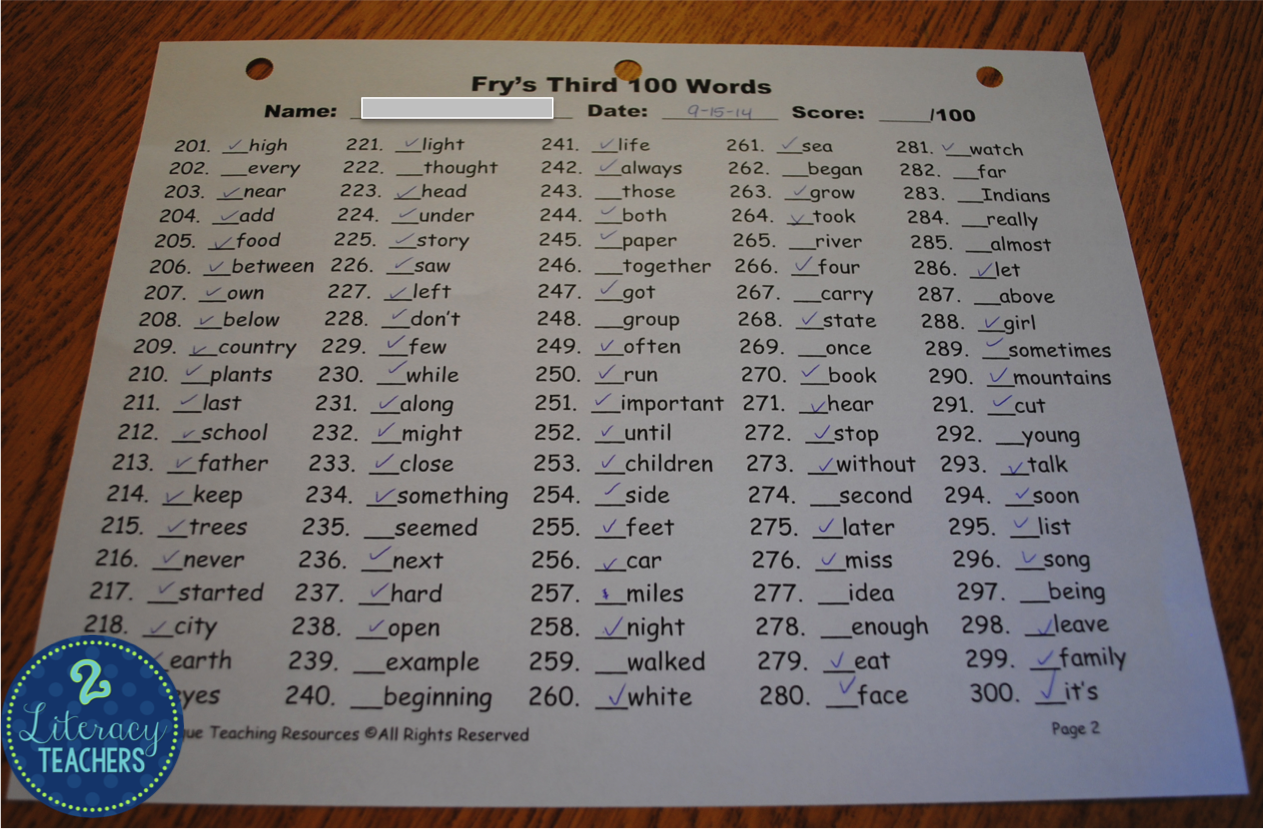 Fry's Third 100 Words
Name: Date: 9-15-14 Score: ____/100
201. ✓high 221. ✓light 241. ✓life 261. ✓sea 281. ✓watch
202. __every 222. __thought 242. ✓always 262. __began 282. __far
203. ✓near 223. ✓head 243. __those 263. ✓grow 283. __Indians
204. ✓add 224. ✓under 244. ✓both 264. ✓took 284. __really
205. ✓food 225. ✓story 245. ✓paper 265. __river 285. __almost
206. ✓between 226. ✓saw 246. __together 266. ✓four 286. ✓let
207. ✓own 227. ✓left 247. ✓got 267. __carry 287. __above
208. ✓below 228. ✓don't 248. __group 268. ✓state 288. ✓girl
209. ✓country 229. ✓few 249. ✓often 269. __once 289. ✓sometimes
210. ✓plants 230. ✓while 250. ✓run 270. ✓book 290. ✓mountains
211. ✓last 231. ✓along 251. ✓important 271. ✓hear 291. ✓cut
212. ✓school 232. ✓might 252. ✓until 272. ✓stop 292. __young
213. ✓father 233. ✓close 253. ✓children 273. ✓without 293. ✓talk
214. ✓keep 234. ✓something 254. ✓side 274. __second 294. ✓soon
215. ✓trees 235. __seemed 255. ✓feet 275. ✓later 295. ✓list
216. ✓never 236. ✓next 256. ✓car 276. ✓miss 296. ✓song
217. ✓started 237. ✓hard 257. __miles 277. __idea 297. __being
218. ✓city 238. ✓open 258. ✓night 278. __enough 298. ✓leave
✓earth 239. __example 259. __walked 279. ✓eat 299. ✓family
eyes 240. __beginning 260. ✓white 280. ✓face 300. ✓it's
Teaching Resources ©All Rights Reserved Page 2
2
Literacy
TEACHERS